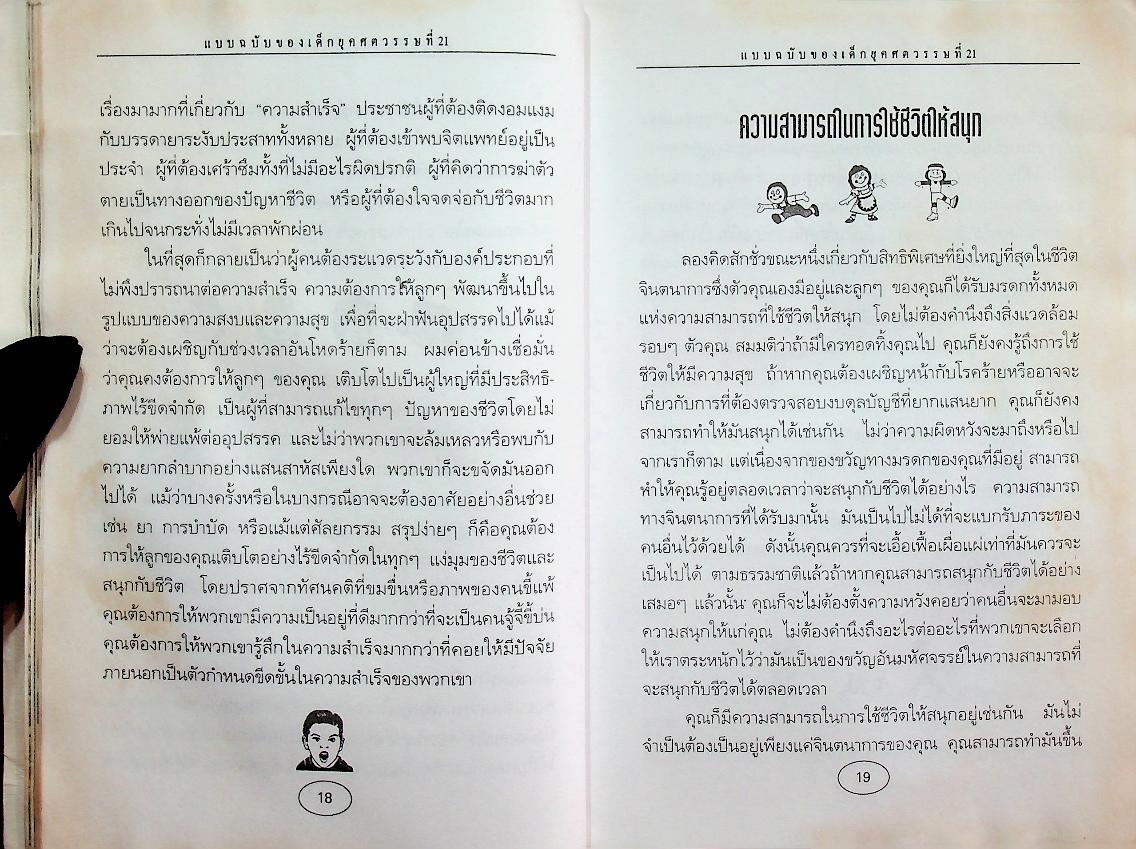 แบบฉบับของเด็กยุคศตวรรษที่ 21
เรื่องมามากที่เกี่ยวกับ “ความสำเร็จ” ประชาชนผู้ที่ต้องติดงอมแงม
กับบรรดายาระงับประสาททั้งหลาย ผู้ที่ต้องเข้าพบจิตแพทย์อยู่เป็น
ประจำ ผู้ที่ต้องเศร้าซึมทั้งที่ไม่มีอะไรผิดปรกติ ผู้ที่คิดว่าการฆ่าตัว
ตายเป็นทางออกของปัญหาชีวิต หรือผู้ที่ต้องใจจดจ่อกับชีวิตมาก
เกินไปจนกระทั่งไม่มีเวลาพักผ่อน
ในที่สุดก็กลายเป็นว่าผู้คนต้องระแวดระวังกับองค์ประกอบที่
ไม่พึงปรารถนาต่อความสำเร็จ ความต้องการให้ลูกๆ พัฒนาขึ้นไปใน
รูปแบบของความสงบและความสุข เพื่อที่จะฝ่าฟันอุปสรรคไปได้แม้
ว่าจะต้องเผชิญกับช่วงเวลาอันโหดร้ายก็ตาม ผมค่อนข้างเชื่อมั่น
ว่าคุณคงต้องการให้ลูกๆ ของคุณ เติบโตไปเป็นผู้ใหญ่ที่มีประสิทธิ-
ภาพไร้ขีดจำกัด เป็นผู้ที่สามารถแก้ไขทุกๆ ปัญหาของชีวิตโดยไม่
ยอมให้พ่ายแพ้ต่ออุปสรรค และไม่ว่าพวกเขาจะล้มเหลวหรือพบกับ
ความยากลำบากอย่างแสนสาหัสเพียงใด พวกเขาก็จะขจัดมันออก
ไปได้ แม้ว่าบางครั้งหรือในบางกรณีอาจจะต้องอาศัยอย่างอื่นช่วย
เช่น ยา การบำบัด หรือแม้แต่ศัลยกรรม สรุปง่ายๆ ก็คือคุณต้อง
การให้ลูกของคุณเติบโตอย่างไร้ขีดจำกัดในทุกๆ แง่มุมของชีวิตและ
สนุกกับชีวิต โดยปราศจากทัศนคติที่ขมขื่นหรือภาพของคนขี้แพ้
คุณต้องการให้พวกเขามีความเป็นอยู่ที่ดีมากกว่าที่จะเป็นคนจู้จี้ขี้บ่น
คุณต้องการให้พวกเขารู้สึกในความสำเร็จมากกว่าที่คอยให้มีปัจจัย
ภายนอกเป็นตัวกำหนดขีดขั้นในความสำเร็จของพวกเขา
18
แบบฉบับของเด็กยุคศตวรรษที่ 21
ความสามารถในการใช้ชีวิตให้สนุก
ลองคิดสักชั่วขณะหนึ่งเกี่ยวกับสิทธิพิเศษที่ยิ่งใหญ่ที่สุดในชีวิต
จินตนาการซึ่งตัวคุณเองมีอยู่และลูกๆ ของคุณก็ได้รับมรดกทั้งหมด
แห่งความสามารถที่ใช้ชีวิตให้สนุก โดยไม่ต้องคำนึงถึงสิ่งแวดล้อม
รอบๆ ตัวคุณ สมมติว่าถ้ามีใครทอดทิ้งคุณไป คุณก็ยังคงรู้ถึงการใช้
ชีวิตให้มีความสุข ถ้าหากคุณต้องเผชิญหน้ากับโรคร้ายหรืออาจจะ
เกี่ยวกับการที่ต้องตรวจสอบงบดุลบัญชีที่ยากแสนยาก คุณก็ยังคง
สามารถทำให้มันสนุกได้เช่นกัน ไม่ว่าความผิดหวังจะมาถึงหรือไป
จากเราก็ตาม แต่เนื่องจากของขวัญทางมรดกของคุณที่มีอยู่ สามารถ
ทำให้คุณรู้อยู่ตลอดเวลาว่าจะสนุกกับชีวิตได้อย่างไร ความสามารถ
ทางจินตนาการที่ได้รับมานั้น มันเป็นไปไม่ได้ที่จะแบกรับภาระของ
คนอื่นไว้ด้วยได้ ดังนั้นคุณควรที่จะเอื้อเฟื้อเผื่อแผ่เท่าที่มันควรจะ
เป็นไปได้ ตามธรรมชาติแล้วถ้าหากคุณสามารถสนุกกับชีวิตได้อย่าง
เสมอๆ แล้วนั้น คุณก็จะไม่ต้องตั้งความหวังคอยว่าคนอื่นจะมามอบ
ความสนุกให้แก่คุณ ไม่ต้องคำนึงถึงอะไรต่ออะไรที่พวกเขาจะเลือก
ให้เราตระหนักไว้ว่ามันเป็นของขวัญอันมหัศจรรย์ในความสามารถที่
จะสนุกกับชีวิตได้ตลอดเวลา
คุณก็มีความสามารถในการใช้ชีวิตให้สนุกอยู่เช่นกัน มันไม่
จำเป็นต้องเป็นอยู่เพียงแค่จินตนาการของคุณ คุณสามารถทำมันขึ้น
19